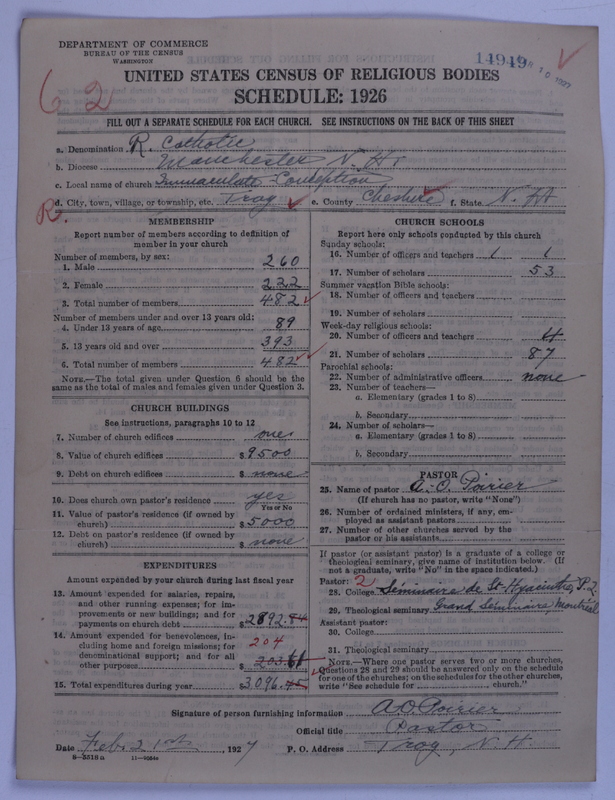 DEPARTMENT OF COMMERCE
BUREAU OF THE CENSUS
WASHINGTON
14949
UNITED STATES CENSUS OF RELIGIOUS BODIES
SCHEDULE: 1926
62
FILL OUT A SEPARATE SCHEDULE FOR EACH CHURCH. SEE INSTRUCTIONS ON THE BACK OF THIS SHEET
a. Denomination R. Catholic
b. Diocese Manchester N. H.
c. Local name of church Immaculate Conception
d. City, town, village, or township, etc. Troy e. County Cheshire f. State N. H
R.
MEMBERSHIP
Report number of members according to definition of member in your church
Number of members, by sex:
1. Male 260
2. Female 222
3. Total number of members 482
Number of members under and over 13 years old:
4. Under 13 years of age 89
5. 13 years old and over 393
6. Total number of members 482
NOTE.—The total given under Question 6 should be the
same as the total of males and females given under Question 3.
CHURCH BUILDINGS
See instructions, paragraphs 10 to 12
7. Number of church edifices one
8. Value of church edifices $ 9500
9. Debt on church edifices $ none
10. Does church own pastor's residence yes
Yes or No
11. Value of pastor's residence (if owned by
church) $ 5000
12. Debt on pastor's residence (if owned by
church) $ none
EXPENDITURES
Amount expended by your church during last fiscal year
13. Amount expended for salaries, repairs,
and other running expenses; for im-
provements or new buildings; and for
payments on church debt $ 2892.84
14. Amount expended for benevolences, in-
cluding home and foreign missions; for
denominational support; and for all
other purposes $ 203.61
204
15. Total expenditures during year $ 3,096.45
CHURCH SCHOOLS
Report here only schools conducted by this church
Sunday schools:
16. Number of officers and teachers 1 1
17. Number of scholars 53
Summer vacation Bible schools:
18. Number of officers and teachers
19. Number of scholars
Week-day religious schools:
20. Number of officers and teachers 4
21. Number of scholars 87
Parochial schools:
22. Number of administrative officers none
23. Number of teachers—
a. Elementary (grades 1 to 8)
b. Secondary
24. Number of scholars—
a. Elementary (grades 1 to 8)
b. Secondary
PASTOR
25. Name of pastor A. O. Poirier
(If church has no pastor, write "None")
26. Number of ordained ministers, if any, em-
ployed as assistant pastors
27. Number of other churches served by the
pastor or his assistants
If pastor (or assistant pastor) is a graduate of a college or
theological seminary, give name of institution below. (If
not a graduate, write "No" in the space indicated.)
Pastor: 2
28. College Séminaire de St-Hyacinthe, P.Q.
29. Theological seminary Grand Séminaire Montréal
Assistant pastor:
30. College
31. Theological seminary
NOTE.—Where one pastor serves two or more churches,
Questions 28 and 29 should be answered only on the schedule
for one of the churches; on the schedules for the other churches,
write "See schedule for ........ church."
Signature of person furnishing information A.O. Poirier
Official title Pastor
Date Feb. 21st, 1927 P. O. Address Troy, N. H.
8—5318a 11—9064a